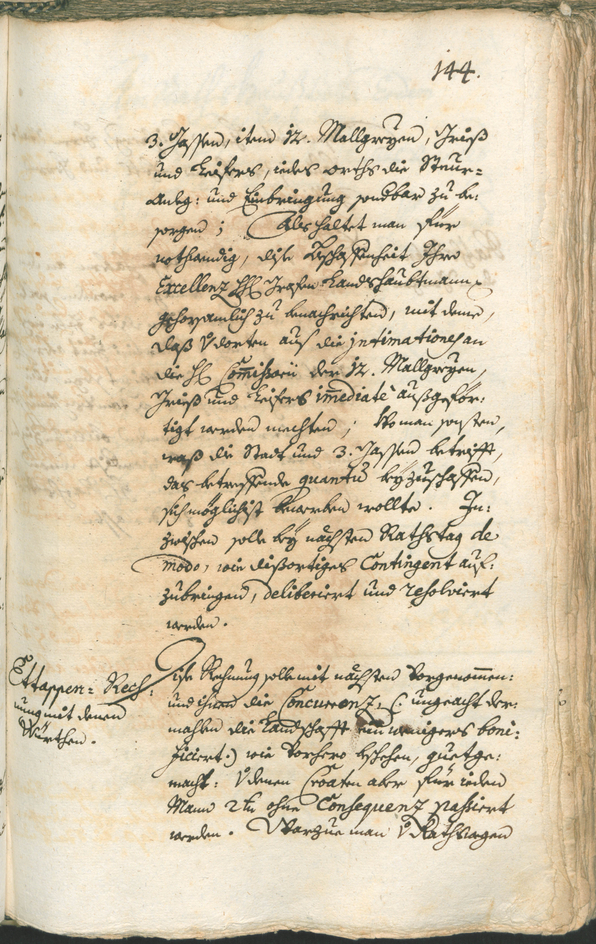 144.
3. Gassen, item 12. Mallgreyen, Grieß
und Leifers, iedes orths die Steur-
Anleg: und Einbringung sondbar zu be-
sorgen; Als haltet man für
nothwendig, dise Beschaffenheit Ihro
Excellenz H: Grafen Landshaubtmann
gehorsamlich zu benachrichten, mit deme,
daß von dorten aus die intimationes an
die H: Commissarii der 12. Mallgreyen,
Grieß und Leifers immediatè außgeför-
tigt werden mechten; Wo man sonsten,
was die Stadt und 3. Gassen betrifft,
das betreffende quantum beyzuschaffen,
sich möglichist bewerben wollte. In-
zwischen solle bey nächsten Rathstag de
modo, wie disortiges Contingent auf-
zubringen, deliberiert und resolviert
werden.
Ettappen-Rech-
nung mit denen
Würthen.
Dise Rechnung solle mit nächsten vorgenommen:
und ihnen die Concurrenz (: ungeacht der-
mahlen die Landschafft ein wenigers boni-
ficiert:) wie vorhero beschehen, guetge-
macht: denen Croaten aber für ieden
Mann 2 kr ohne Consequenz passiert
werden. Warzue man